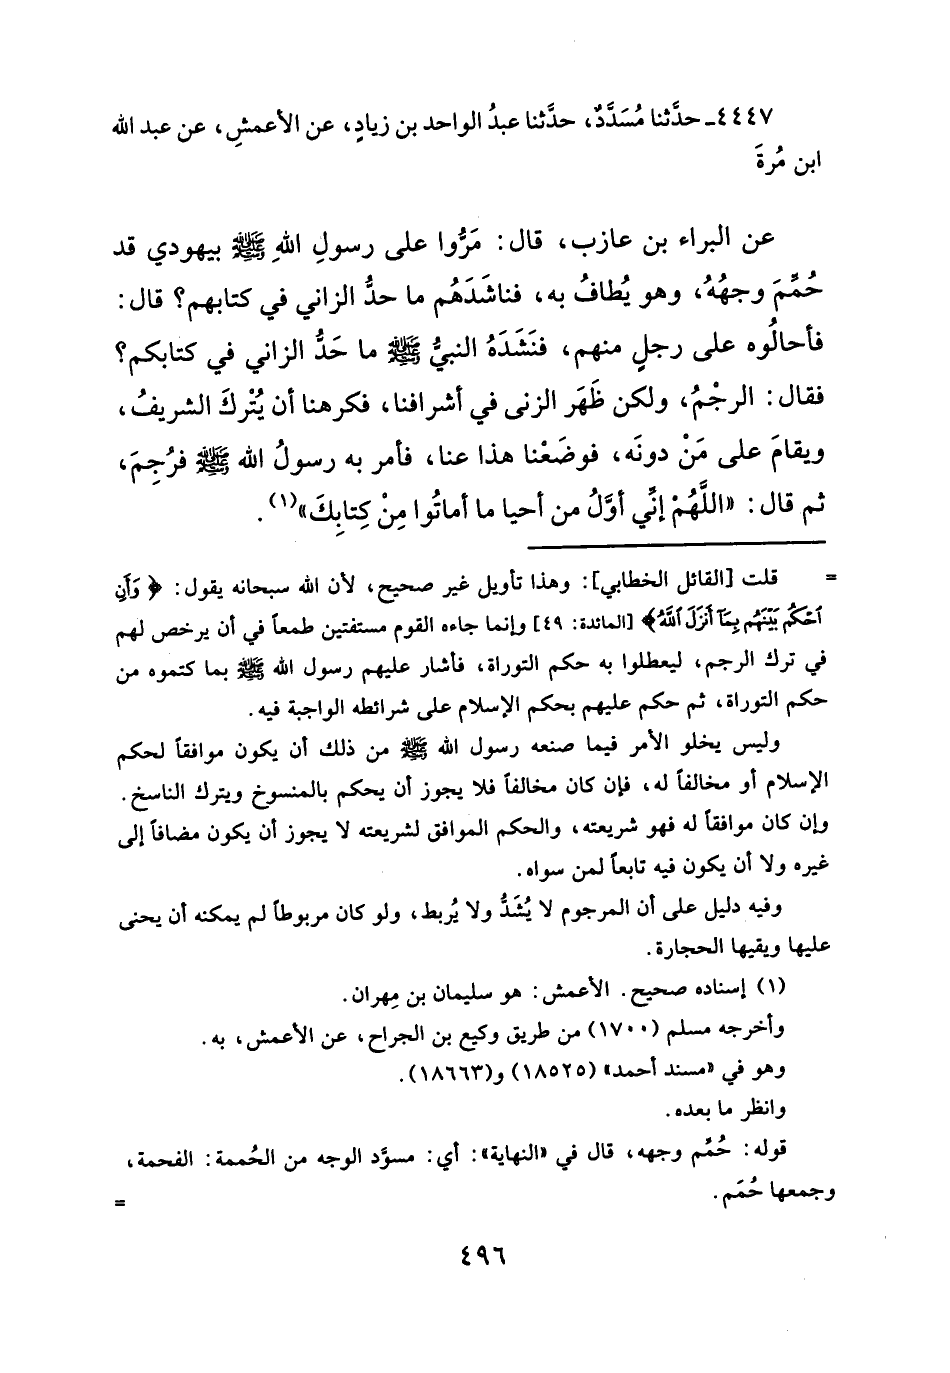 ٤٤٤٧ـ حدَّثنا مُسَدَّدٌ، حدَّثنا عبدُ الواحد بن زيادٍ، عن الأعمشِ، عن عبد الله
ابن مُرةَ
عن البراء بن عازب، قال: مَرُّوا على رسولِ اللهِ ﷺ بيهودي قد
حُمِّمَ وجهُهُ، وهو يُطافُ به، فناشَدَهُم ما حدُّ الزاني في كتابهم؟ قال:
فأحالُوه على رجلٍ منهم، فنَشَدَهُ النبيُّ ﷺ ما حَدُّ الزاني في كتابكم؟
فقال: الرجْمُ، ولكن ظَهَر الزنى في أشرافنا، فكرهنا أن يُتْركَ الشريفُ،
ويقامَ على مَنْ دونَه، فوضَعْنا هذا عنا، فأمر به رسولُ الله ﷺ فرُجِمَ،
ثم قال: «اللَّهُمْ إنِّي أوَّلُ من أحيا ما أماتُوا مِنْ كِتابِكَ»(١).
= قلت [القائل الخطابي]: وهذا تأويل غير صحيح، لأن الله سبحانه يقول: ﴿وَأَنِ
ٱحْكُم بَيْنَهُم بِمَآ أَنزَلَ ٱللَّهُ﴾ [المائدة: ٤٩] وإنما جاءه القوم مستفتين طمعاً في أن يرخص لهم
في ترك الرجم، ليعطلوا به حكم التوراة، فأشار عليهم رسول الله ﷺ بما كتموه من
حكم التوراة، ثم حكم عليهم بحكم الإسلام على شرائطه الواجبة فيه.
وليس يخلو الأمر فيما صنعه رسول الله ﷺ من ذلك أن يكون موافقاً لحكم
الإسلام أو مخالفاً له، فإن كان مخالفاً فلا يجوز أن يحكم بالمنسوخ ويترك الناسخ.
وإن كان موافقاً له فهو شريعته، والحكم الموافق لشريعته لا يجوز أن يكون مضافاً إلى
غيره ولا أن يكون فيه تابعاً لمن سواه.
وفيه دليل على أن المرجوم لا يُشَدُّ ولا يُربط، ولو كان مربوطاً لم يمكنه أن يحنى
عليها ويقيها الحجارة.
(١) إسناده صحيح. الأعمش: هو سليمان بن مِهران.
وأخرجه مسلم (١٧٠٠) من طريق وكيع بن الجراح، عن الأعمش، به.
وهو في «مسند أحمد» (١٨٥٢٥) و(١٨٦٦٣).
وانظر ما بعده.
قوله: حُمِّم وجهه، قال في «النهاية»: أي: مسوَّد الوجه من الحُممة: الفحمة،
وجمعها حُمَم. =
٤٩٦